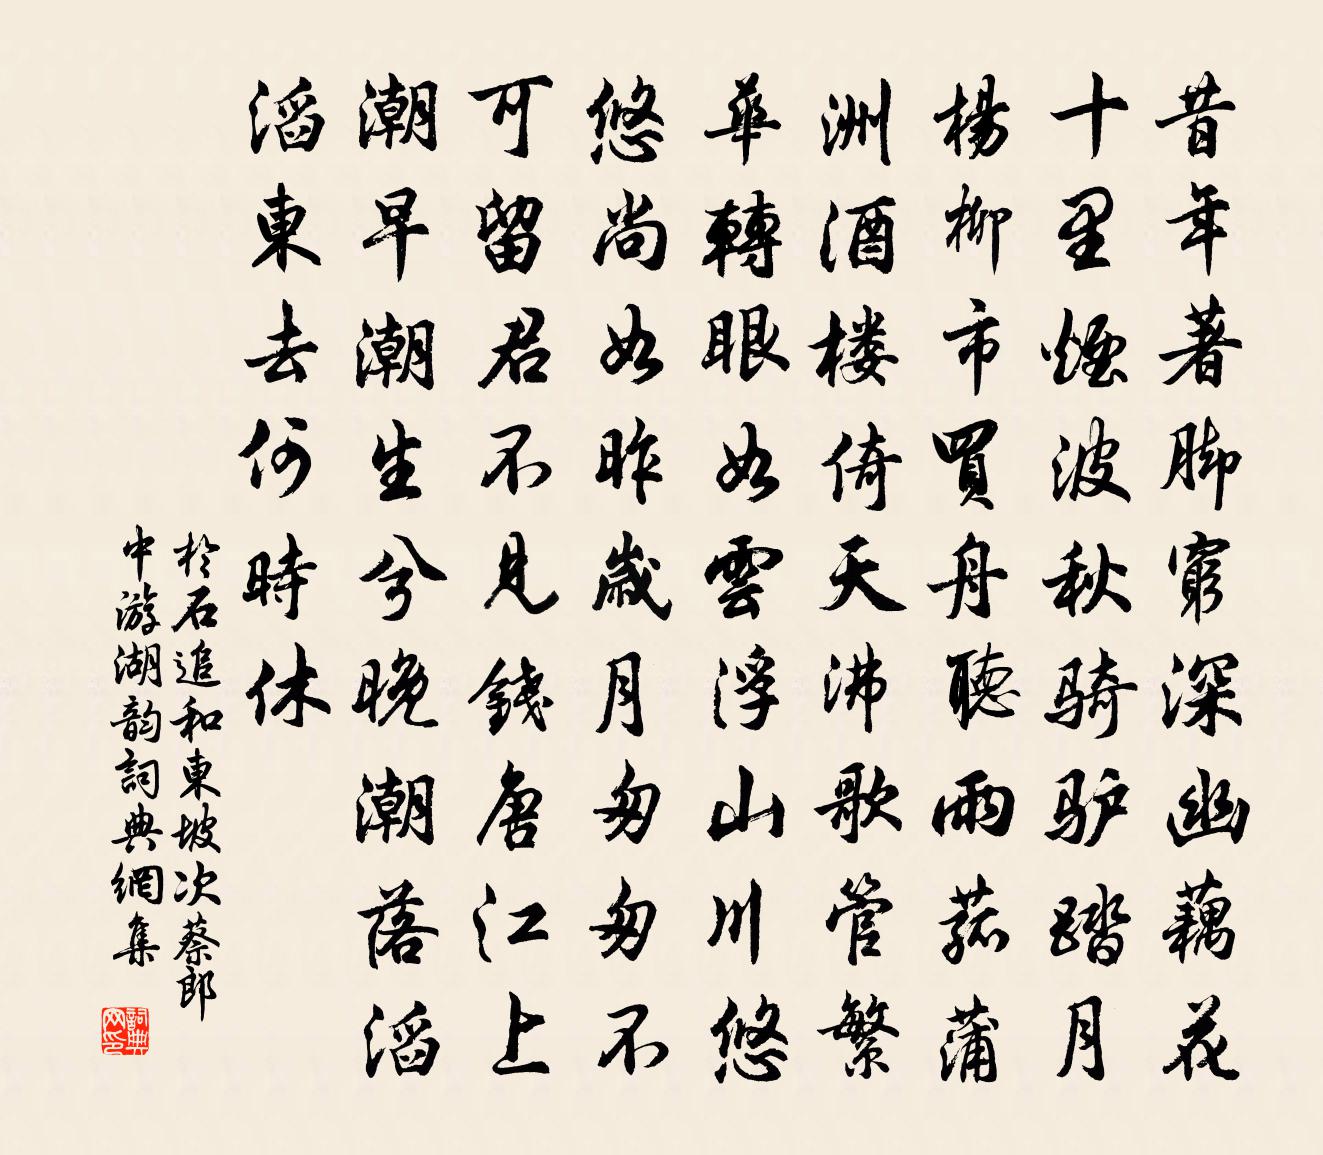 昔年著脚窮深幽藕花
十里煙波秋骑驴踏月
楊柳市買舟聽雨菰蒲
洲酒楼倚天沸歌管繁
華轉眼如雲浮山川悠
悠尚如昨歲月匆匆不
可留君不見錢唐江上
潮早潮生兮晚潮落滔
滔東去何時休
於石追和東坡次蔡郎
中游湖韵詞典網集
詞典网印